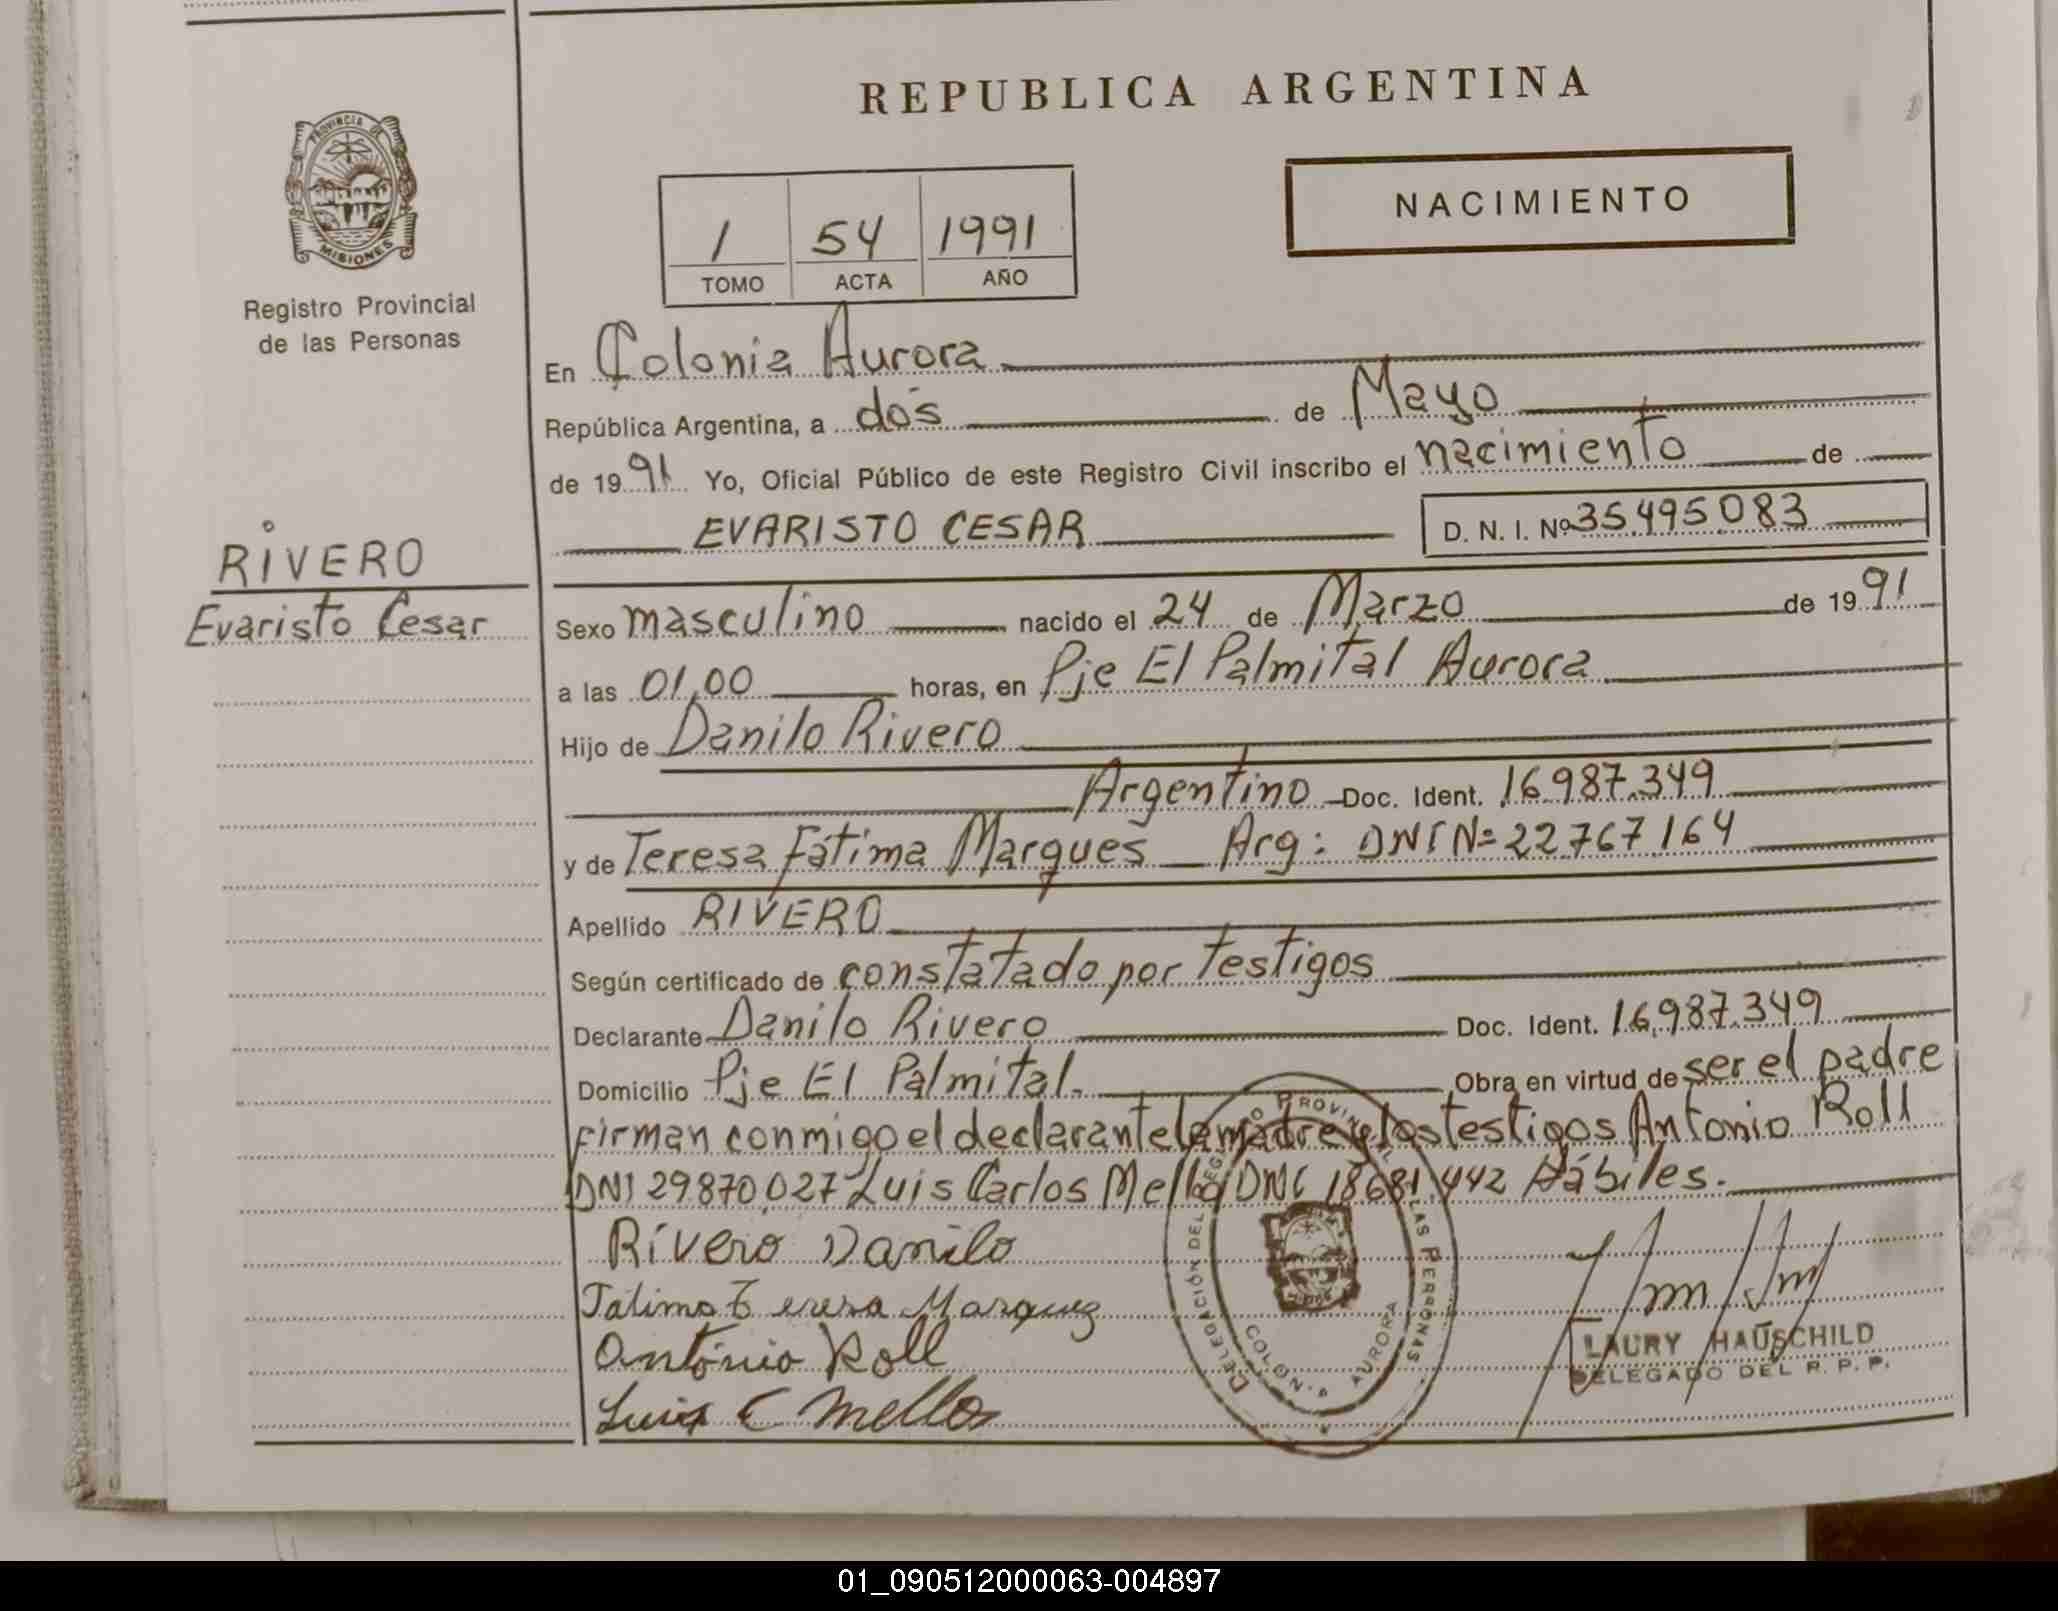 REPUBLICA ARGENTINA
PROVINCIA DE
MISIONES
Registro Provincial
de las Personas
NACIMIENTO
1 54 1991
TOMO ACTA AÑO
En Colonia Aurora
República Argentina, a dos de Mayo
de 1991 Yo, Oficial Público de este Registro Civil inscribo el nacimiento de
EVARISTO CESAR D. N. I. Nº 35495083
RIVERO
Evaristo Cesar
Sexo masculino nacido el 24 de Marzo de 1991
a las 01,00 horas, en Pje El Palmital Aurora
Hijo de Danilo Rivero
Argentino Doc. Ident. 16.987.349
y de Teresa Fátima Marques Arg: DNI Nº 22.767.164
Apellido RIVERO
Según certificado de constatado por testigos
Declarante Danilo Rivero Doc. Ident. 16.987.349
Domicilio Pje El Palmital. Obra en virtud de ser el padre
firman conmigo el declarante la madre y los testigos Antonio Roll
DNI 29.870.027 Luis Carlos Mello DNI 18.681.442 Hábiles.
Rivero Danilo
Fatima Teresa Marquez
António Roll
Luis C Mello
DELEGACIÓN DEL REGISTRO PROVINCIAL DE LAS PERSONAS
COLONIA AURORA
LAURY HAUSCHILD
DELEGADO DEL R. P. P.
01_090512000063-004897